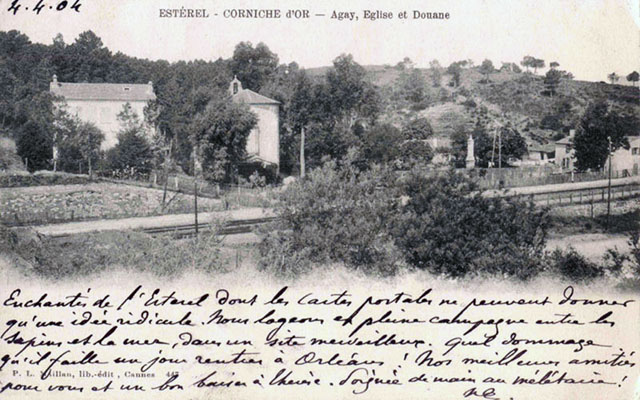 4.4.04
ESTÉREL - CORNICHE d'OR — Agay, Eglise et Douane
Enchantés de l'Esterel dont les cartes postales ne peuvent donner
qu'une idée ridicule. Nous logeons en pleine campagne entre les
sapins et la mer, dans un site merveilleux. Quel dommage
qu'il faille un jour rentrer à Orléans! Nos meilleures amitiés
P. L. Maillan, lib.-édit, Cannes
pour vous et un bon baiser à